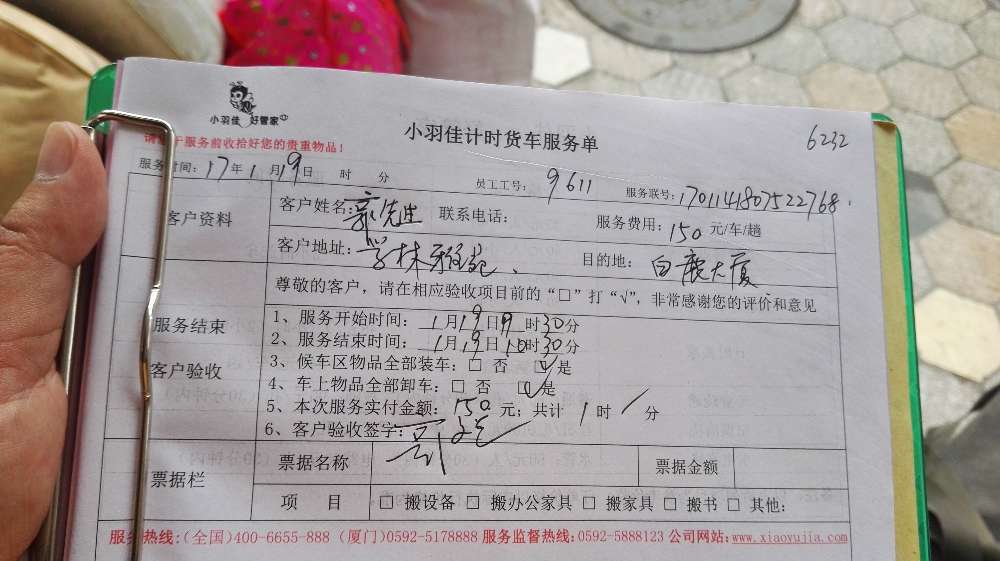 小羽佳 好管家
小羽佳计时货车服务单
6232
服务前收拾好您的贵重物品！
服务时间：17年1月19日 时 分 员工工号：9611 服务联号：1701141807522768
客户资料
客户姓名：郭先生 联系电话： 服务费用：150元/车/趟
客户地址：学林雅苑 目的地：白鹿大厦
尊敬的客户，请在相应验收项目前的“□”打“√”，非常感谢您的评价和意见
服务结束
客户验收
1、服务开始时间：1月19日9时30分
2、服务结束时间：1月19日10时30分
3、候车区物品全部装车：□ 否 □√是
4、车上物品全部卸车：□ 否 □√是
5、本次服务实付金额：150元；共计 1 时 / 分
6、客户验收签字：
票据栏
票据名称 票据金额
项 目 □ 搬设备 □ 搬办公家具 □ 搬家具 □ 搬书 □ 其他：
服务热线：(全国)400-6655-888 (厦门)0592-5178888 服务监督热线：0592-5888123 公司网站：www.xiaoyujia.com